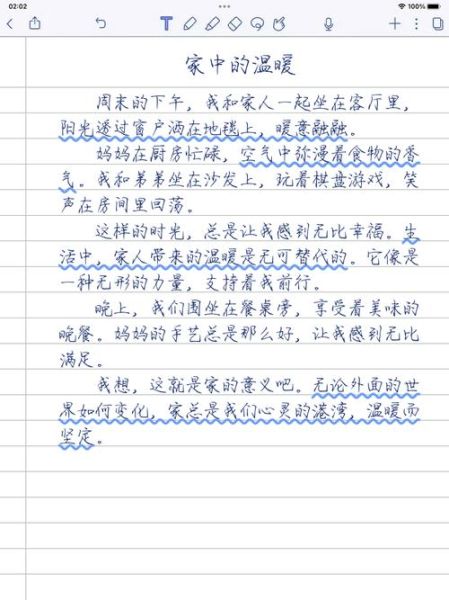 02:02
100%
家中的温暖
周末的下午，我和家人一起坐在客厅里，
阳光透过窗户洒在地毯上，暖意融融。
妈妈在厨房忙碌，空气中弥漫着食物的香
气。我和弟弟坐在沙发上，玩着棋盘游戏，笑
声在房间里回荡。
这样的时光，总是让我感到无比幸福。生
活中，家人带来的温暖是无可替代的。它像是
一种无形的力量，支持着我前行。
晚上，我们围坐在餐桌旁，享受着美味的
晚餐。妈妈的手艺总是那么好，让我感到无比
满足。
我想，这就是家的意义吧。无论外面的世
界如何变化，家总是我们心灵的港湾，温暖而
坚定。